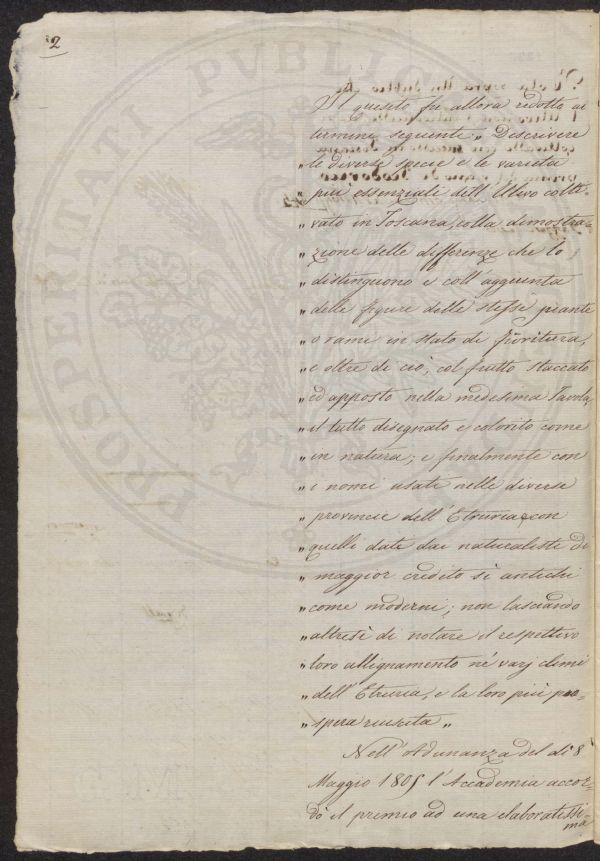 2
Il quesito fu allora ridotto ai
termini seguenti „ Descrivere
„ le diverse specie e le varietà
„ più essenziali dell'Ulivo colti-
„ vato in Toscana, colla dimostra-
„ zione delle differenze che lo
„ distinguono e coll'aggiunta
„ delle figure delle stesse piante
„ o rami in stato di fioritura,
„ e oltre di ciò, col frutto staccato
„ ed apposto nella medesima Tavola,
„ il tutto disegnato e colorito come
„ in natura; e finalmente con
„ i nomi usati nelle diverse
„ provincie dell'Etruria, con
„ quelli dati dai naturalisti di
„ maggior credito sì antichi
„ come moderni; non lasciando
„ altresì di notare il respettivo
„ loro allignamento ne' varj climi
„ dell'Etruria, e la loro più pro-
„ spera riuscita „
Nell'Adunanza del dì 8
Maggio 1805 l'Accademia accor-
dò il premio ad una elaboratissi-
ma
PROSPERITATI PUBLIC